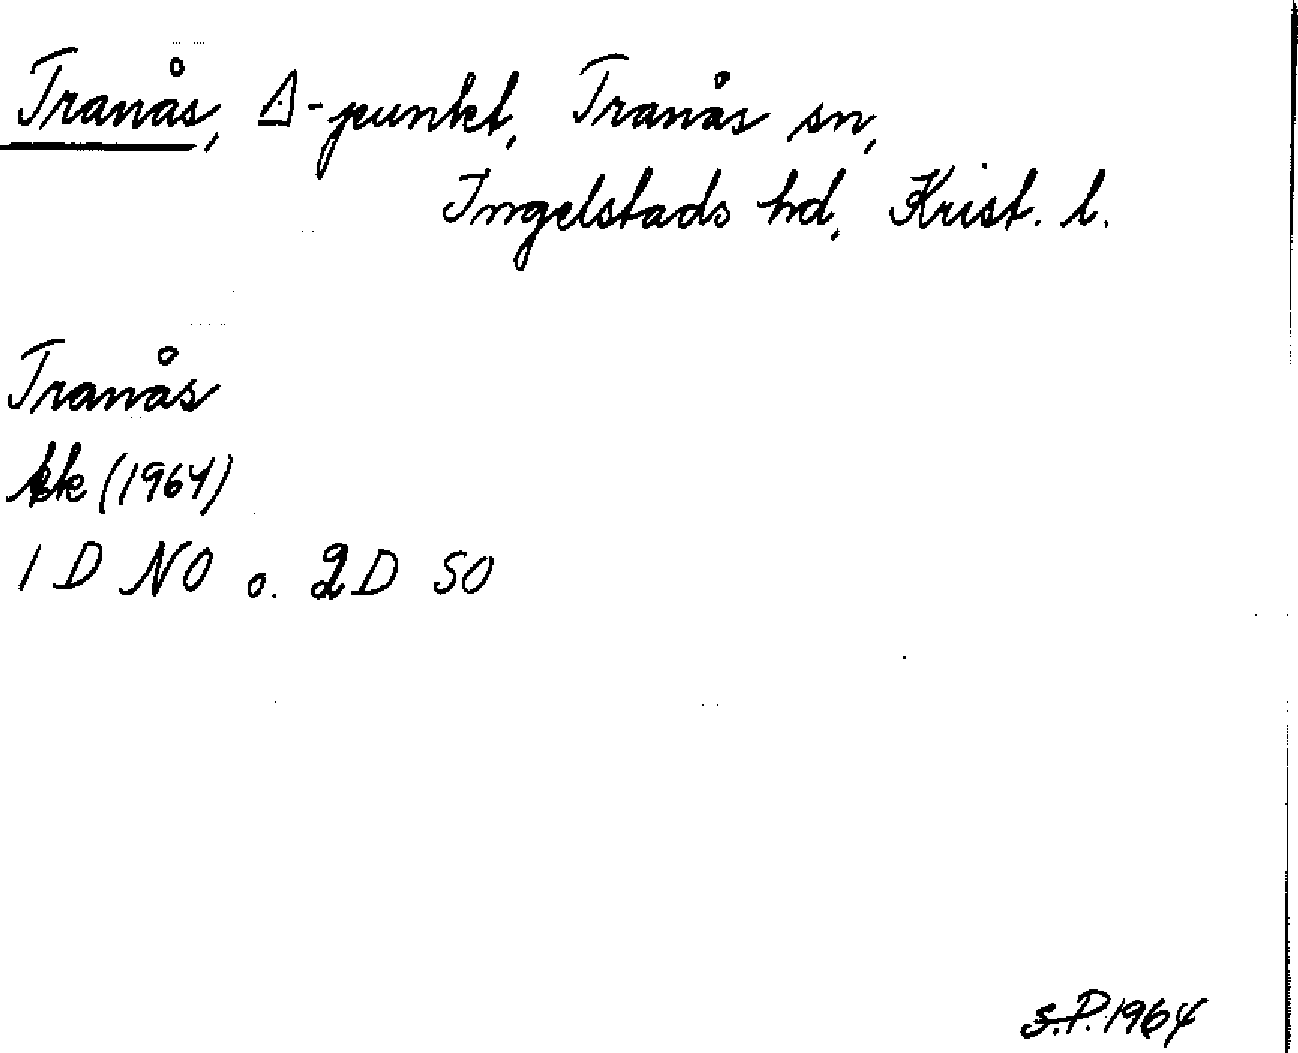 Tranås, △-punkt, Tranås sn,
Ingelstads hd, Krist. l.
Tranås
kk (1964)
1 D NO o. 2D SO
S.P. 1964